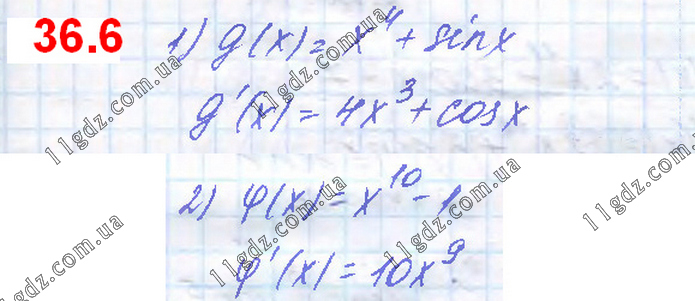 36.6
1) g(x) = x⁴ + sinx
g'(x) = 4x³ + cosx
2) φ(x) = x¹⁰ - 1
φ'(x) = 10x⁹
11gdz.com.ua
11gdz.com.ua
11gdz.com.ua
11gdz.com.ua
11gdz.com.ua
11gdz.com.ua
11gdz.com.ua
11gdz.com.ua